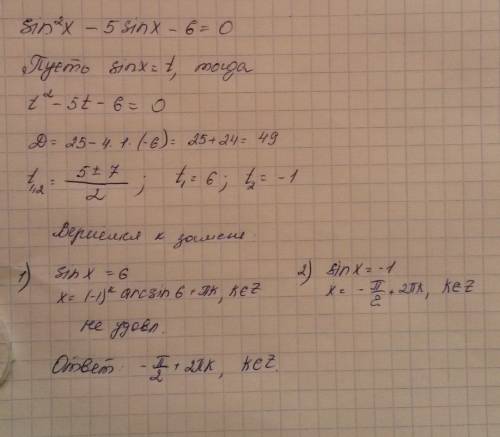 sin²x - 5 sinx - 6 = 0
Пусть sinx = t, тогда
t² - 5t - 6 = 0
D = 25 - 4·1·(-6) = 25 + 24 = 49
t₁,₂ = (5 ± 7)/2 ; t₁ = 6 ; t₂ = -1
Вернемся к замене.
1) sinx = 6
x = (-1)ᵏ arcsin 6 + πk, k∈Z
не удовл.
2) sinx = -1
x = - π/2 + 2πk, k∈Z
Ответ: - π/2 + 2πk, k∈Z.